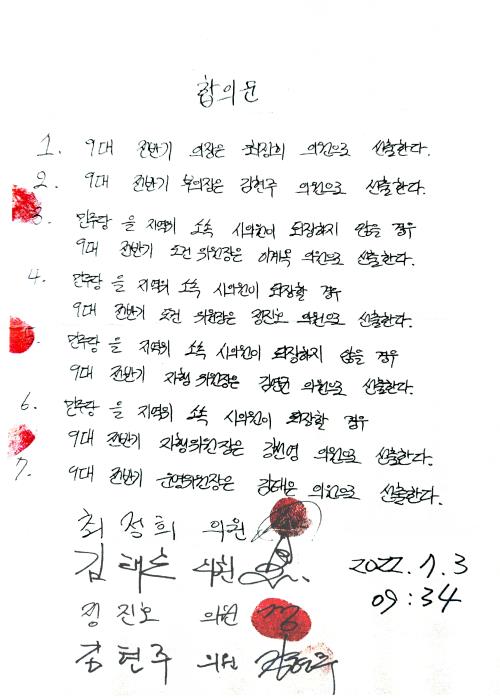 합의문
1. 9대 전반기 의장은 최정희 의원으로 선출한다.
2. 9대 전반기 부의장은 김현주 의원으로 선출한다.
3. 민주당 을 지역위 소속 시의원이 퇴장하지 않을 경우
9대 전반기 도건 위원장은 이계옥 의원으로 선출한다.
4. 민주당 을 지역위 소속 시의원이 퇴장할 경우
9대 전반기 도건 위원장은 정진호 의원으로 선출한다.
민주당 을 지역위 소속 시의원이 퇴장하지 않을 경우
9대 전반기 자행 위원장은 의원으로 선출한다.
6. 민주당 을 지역위 소속 시의원이 퇴장할 경우
9대 전반기 자행위원장은 의원으로 선출한다.
7. 9대 전반기 운영위원장은 의원으로 선출한다.
최정희 의원
김태은 의원
2022. 7. 3
정진호 의원
09:34
김현주 의원 김현주